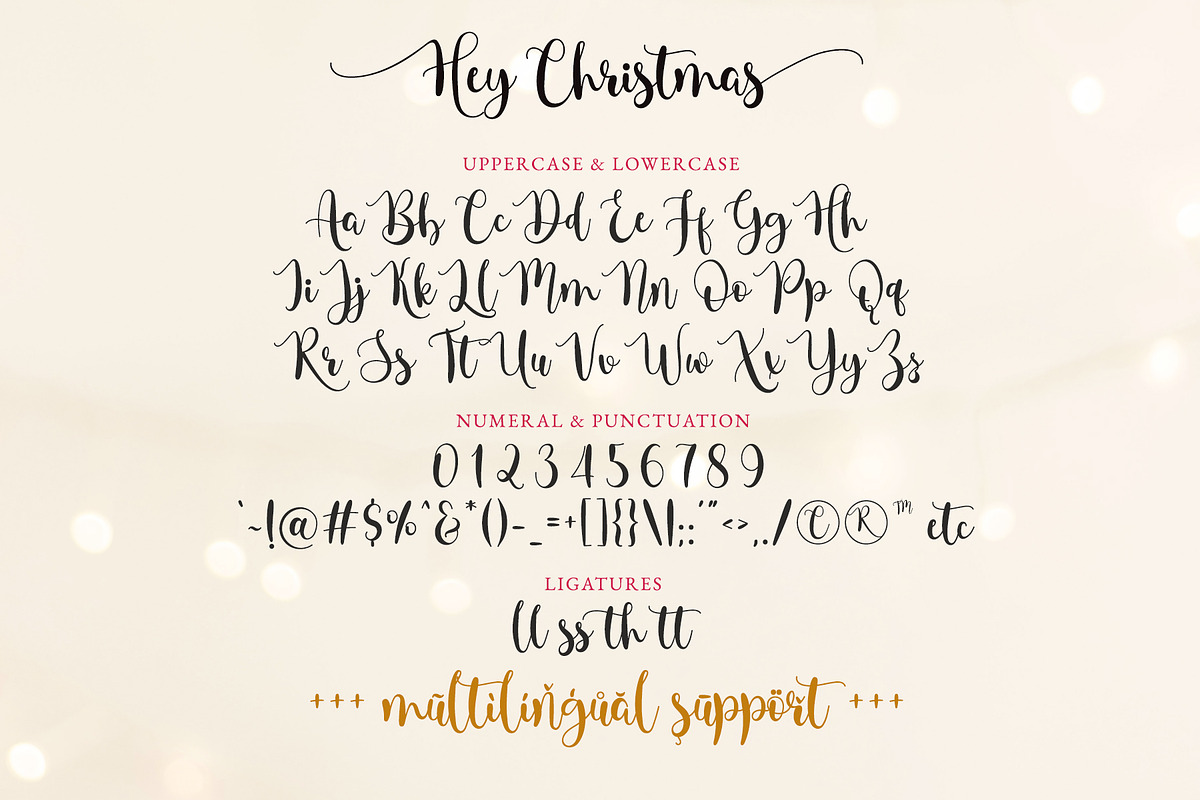 Hey Christmas
UPPERCASE & LOWERCASE
Aa Bb Cc Dd Ee Ff Gg Hh
Ii Jj Kk Ll Mm Nn Oo Pp Qq
Rr Ss Tt Uu Vv Ww Xx Yy Zz
NUMERAL & PUNCTUATION
0 1 2 3 4 5 6 7 8 9
`~!@#$%^&*()-_=+[]{}\|;:'"<>,./©®™ etc
LIGATURES
ll ss th tt
+++ mūltìlíňģůăl şūppöřt +++